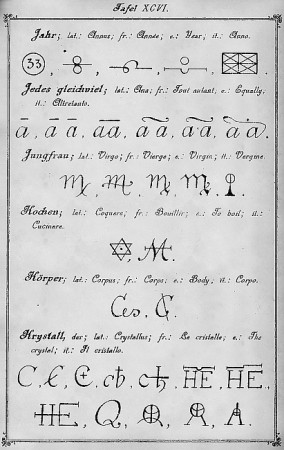 Tafel XCVI.
Jahr; lat.: Annus; fr.: Année; e.: Year; it.: Anno.
33
Jedes gleichviel; lat.: Ana; fr.: Tout autant; e.: Equally;
it.: Altretanto.
a a a aa a aa
Jungfrau; lat.: Virgo; fr.: Vierge; e.: Virgin; it.: Vergine.
Kochen; lat.: Coquere; fr.: Bouillir; e.: To boil; it.:
Körper; lat.: Corpus; fr.: Corps; e.: Body; it.: Corpo.
Krystall, der; lat.: Crystallus; fr.: Le cristalle; e.: The
crystal; it.: Il cristallo.